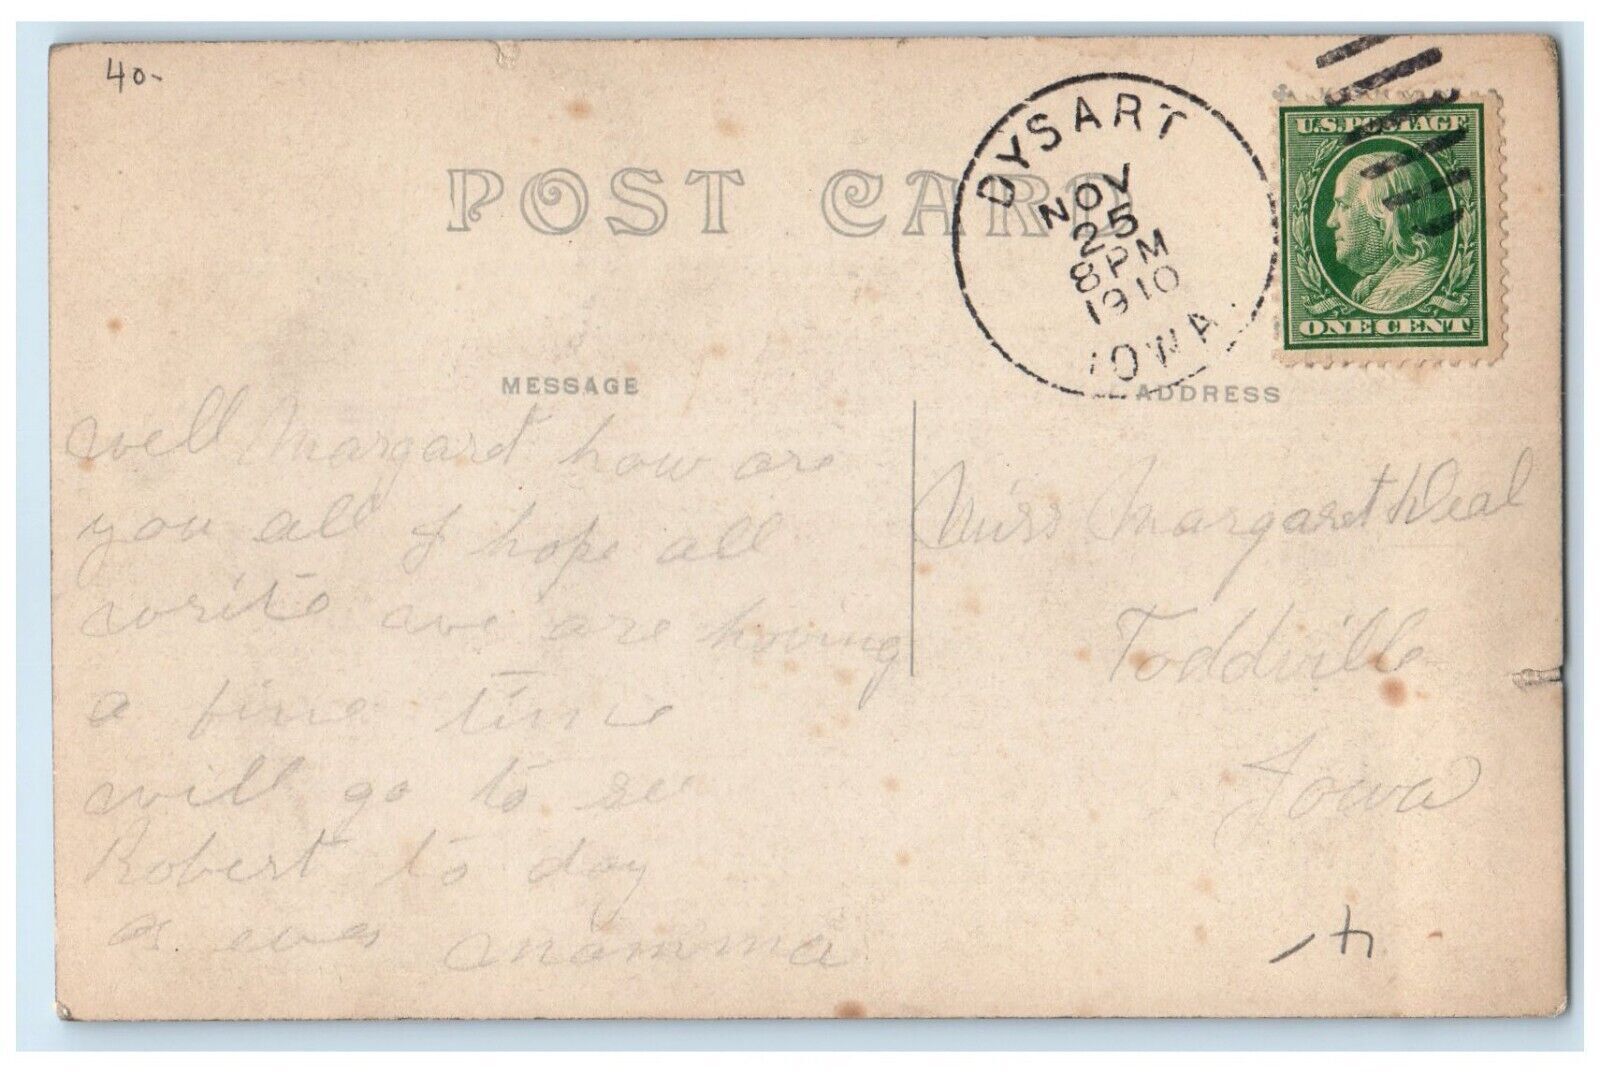 40-
POST CARD
DYSART
NOV
25
8 PM
1910
IOWA.
U.S. POSTAGE
ONE CENT
MESSAGE
ADDRESS
well Margaret how are
you all I hope all
write we are having
a fine time
will go to see
Robert to day
as ever mamma
Miss Margaret Deal
Toddville
Iowa
4-